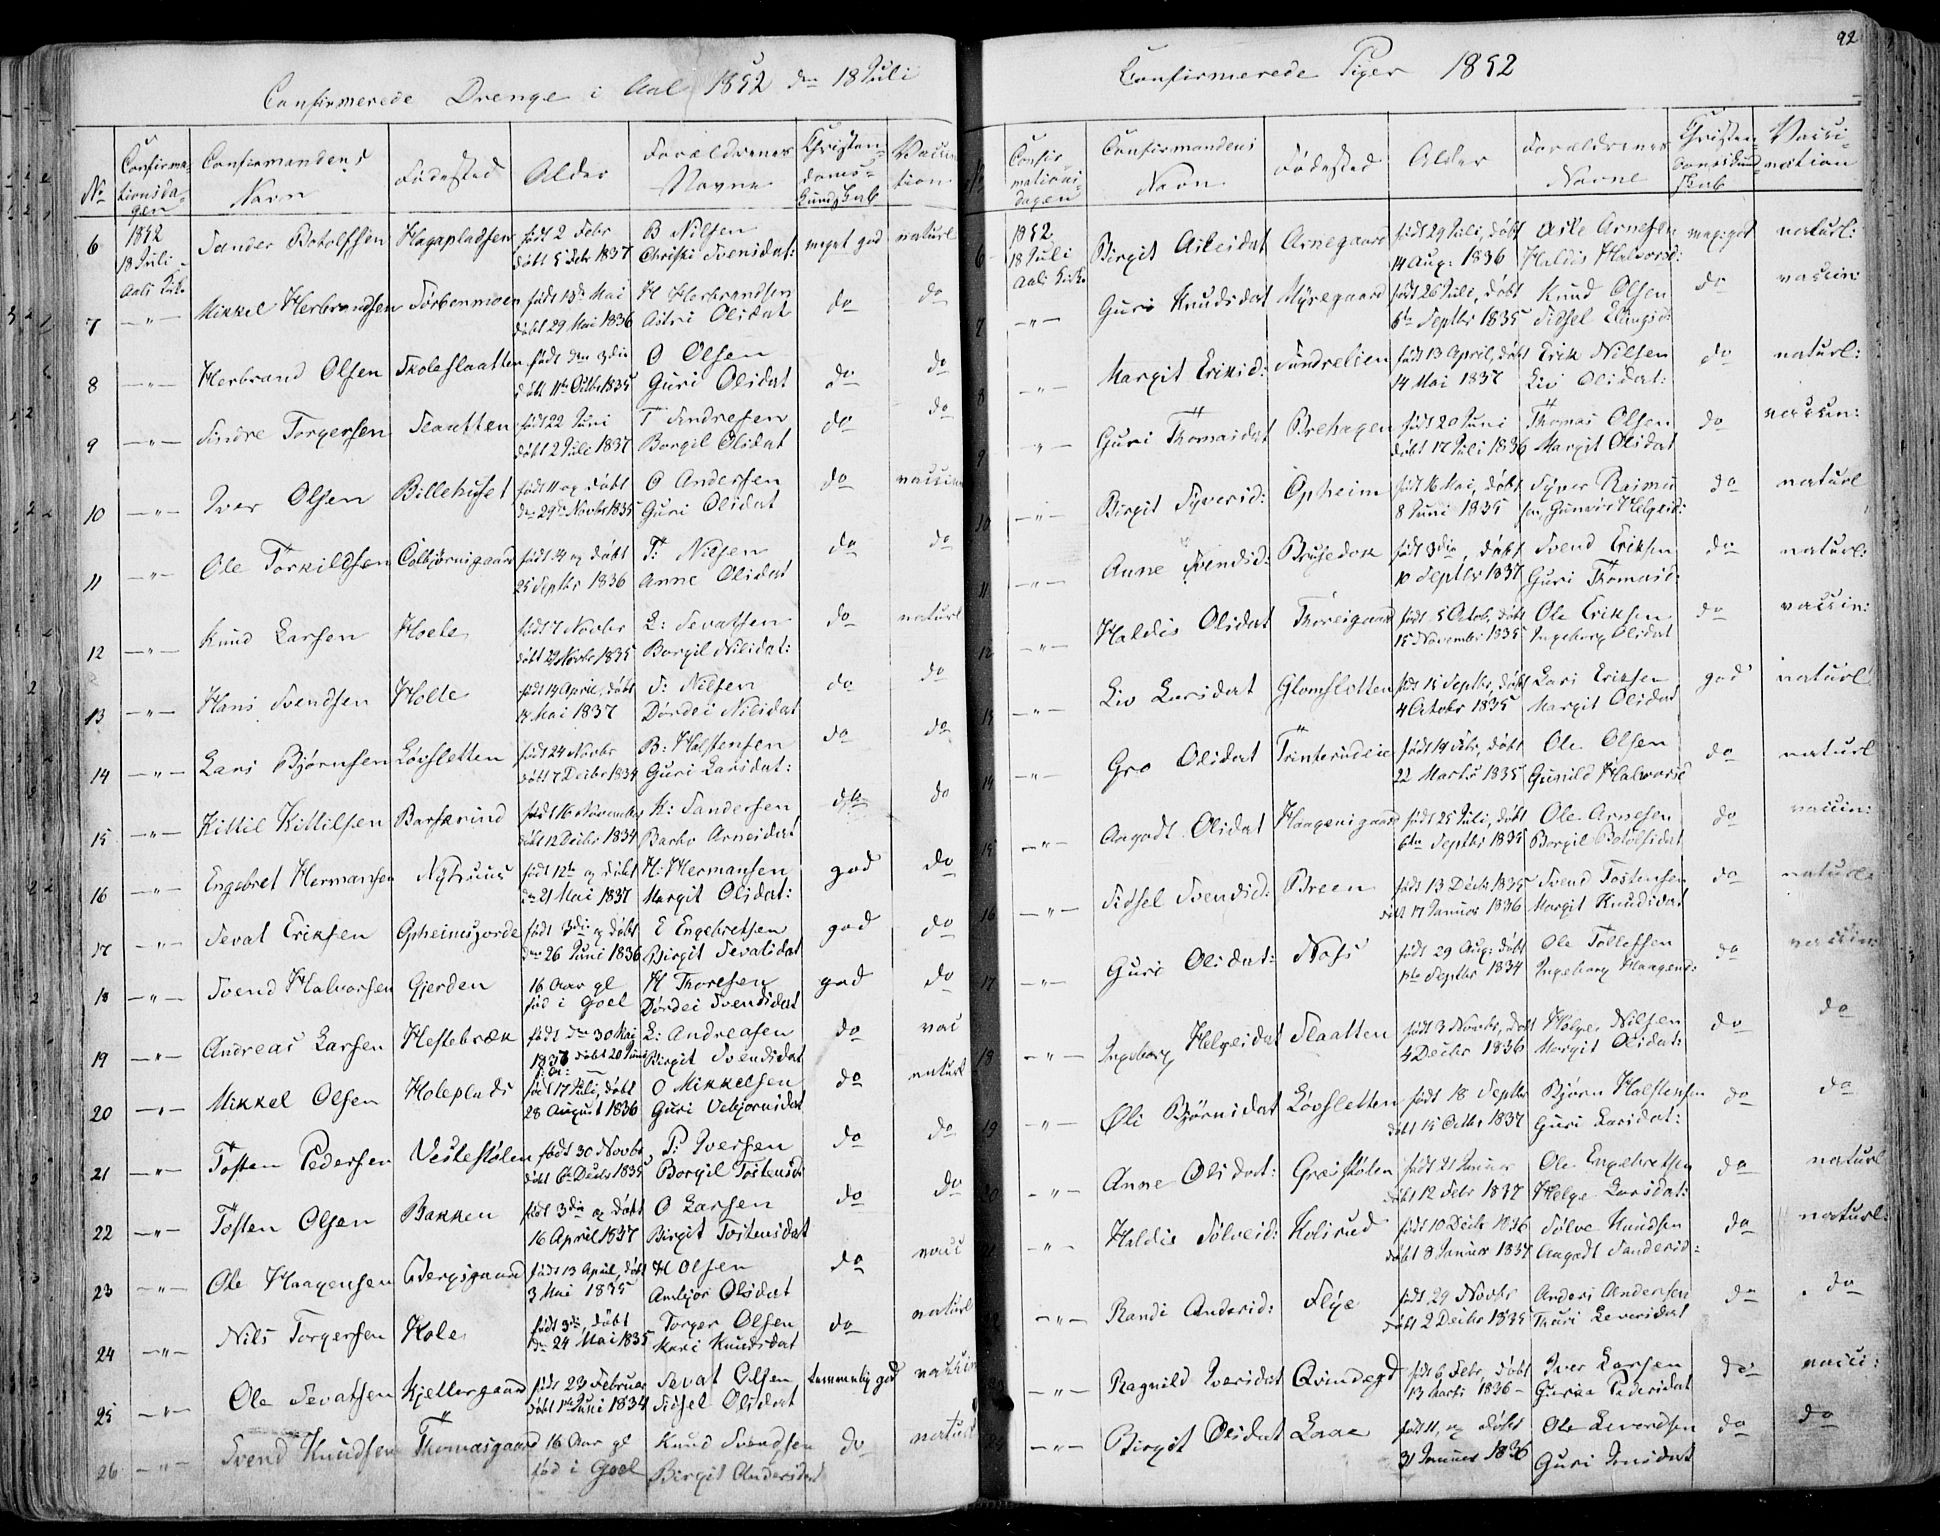 92
Confirmerede Drenge i Aal 1852 den 18 Juli
No
Confirma-
tionsda-
gen
Confirmandens
Navn
Fødested
Alder
Forældrenes
Navne
Christen-
doms-
Kundskab
Vaccina-
tion
6 1852 Sander Botolfsen Hagapladsen født 2 Febr B Nilsen meget god naturl
18 Juli døbt 5 Febr 1837 Christi Svensdat:
Aals Kirke
7 -"- Mikkel Herbrandsen Torbenmoen født 13de Mai H Herbrandsen do do
døbt 29 Mai 1836 Astri Olsdat
8 -"- Herbrand Olsen Skoleslaatten født den 3die O Olsen do do
døbt 11te Octbr 1835 Guri Olsdat
9 -"- Sindre Torgersen Slaatten født 22 Juni T Sindresen do do
døbt 2 Juli 1837 Borgil Olsdat
10 -"- Iver Olsen Billehuset født 11 og døbt O Andersen do vaccin
den 29de Novbr 1835 Guri Olsdat
11 -"- Ole Torkildsen Colbjørnsgaard født 14 og døbt T: Nilsen do do
25 Septbr 1836 Anne Olsdat
12 -"- Knud Larsen Hoele født 7 Novbr L: Sevatsen do naturl
døbt 29 Novbr 1835 Borgil Nilsdat:
13 -"- Hans Svendsen Holte født 14 April, døbt S: Nilsen do do
14 Mai 1837 Dordei Nilsdat
14 -"- Lars Bjørnsen Løvsletten født 24 Novbr B: Halstensen do do
døbt 7 Decbr 1834 Guri Larsdat:
15 -"- Kittil Kittilsen Barskrind født 16 November K: Sandersen do do
døbt 12 Decbr 1834 Barbr Arnesdat
16 -"- Engebret Hermansen Nyhuus født 12te og døbt H: Hermansen god do
den 21 Mai 1837 Margit Olsdat:
17 -"- Sevat Eriksen Opheimsgorde født 3die og døbt E Engebretsen god do
den 26 Juni 1836 Birgit Sevatsdat
18 -"- Svend Halvorsen Gjerden 16 Aar gl H Thoresen god do
fød i Goel Dordei Svendsdat
19 -"- Andreas Larsen Hestebræk født den 30 Mai L: Andreasen do vac
1837 døbt 20 Juni Birgit Svendsdat
20 -"- Mikkel Olsen Holeplads fød 17 Juli, døbt O Mikkelsen do naturl
28 August 1836 Guri Vebjørnsdat
21 -"- Tosten Pedersen Veslestølen født 30 Novbr P: Iversen do do
døbt 6te Decbr 1835 Borgil Tostensd:
22 -"- Tosten Olsen Bakken født 3die og døbt O Larsen do do
16 April 1837 Birgit Tostensdat
23 -"- Ole Haagensen Bergsgaard født 13 April, døbt H Olsen do vacc
3 Mai 1835 Ambjør Olsdat
24 -"- Nils Torgersen Hole født 3die, døbt Torger Olsen do naturl
den 24 Mai 1835 Kari Knudsdat
25 -"- Ole Sevatsen Kjellergaard født 23 Februar Sevat Olsen temmelig god vaccin
døbt 1ste Juni 1834 Sidsel Olsdat
26 -"- Svend Knudsen Thomasgaard 16 Aar gl Knud Svendsen do naturl
fød i Goel Birgit Andersdat
Confirmerede Piger 1852
No
Confir-
mations-
dagen
Confirmandens
Navn
Fødested
Alder
Forældrenes
Navne
Christen-
domskund-
skab
Vacci-
nation
6 1852 Birgit Asledat Arnegaard født 29 Juli, døbt Asle Arnesen meg: god naturl:
18 Juli 14 Aug: 1836 Haldis Halvorsd:
Aals Kirke
7 -"- Guri Knudsdat Myregaard født 26 Juli, døbt Knud Olsen do vaccin:
6te Septbr 1835 Sidsel Ellingsd:
8 -"- Margit Eriksd: Sundrelien født 13 April, døbt Erik Nilsen do naturl:
14 Mai 1837 Liv Olsdat:
9 -"- Guri Thomasdat Brehagen født 20 Juni Thomas Olsen do vaccin:
døbt 17 Juli 1836 Margit Olsdat
10 -"- Birgit Syversd: Opheim født 16 Mai, døbt Syver Reiers do naturl
8 Juni 1835 sen, Gunvor Helgesd:
11 -"- Anne Svendsd: Brusebak født 3die, døbt Svend Eriksen do naturl:
10 Septbr 1837 Guri Thomasd:
12 -"- Haldis Olsdat Thoresgaard født 5 Octob, døbt Ole Eriksen do vaccin:
15 November 1835 Ingeborg Olsdat
13 -"- Liv Larsdat Glomsletten født 15 Septbr, døbt Lars Eriksen god naturl
4 Octobr 1835 Margit Olsdat
14 -"- Gro Olsdat Trinterudeie født 14 Febr, døbt Ole Olsen do naturl
22 Marts 1835 Gunild Halvorsd
15 -"- Aagodt Olsdat Haagensgaard født 25 Juli, døbt Ole Arnesen do vaccin:
6te Septbr 1835 Borgil Botolfsdat
16 -"- Sidsel Svendsd: Breen født 13 Decbr 1835 Svend Tostensen do naturl:
døbt 17 Januar 1836 Margit Knudsdat
17 -"- Guri Olsdat: Noss født 29 Aug: døbt Ole Tollefsen do vaccin:
1ste Septbr 1834 Ingeborg Haagensd:
18 -"- Ingeborg Helgesdat Slaatten født 3 Novbr, døbt Helge Nilsen do do
4 Decbr 1836 Margit Olsdat:
19 -"- Øli Bjørnsdat Løvsletten født 18 Septbr Bjørn Halstensen do do
døbt 15 Octbr 1837 Guri Larsdat:
20 -"- Anne Olsdat: Græsstølen født 21 Januar Ole Engebretsen do naturl
døbt 12 Febr 1837 Helge Larsdat:
21 -"- Haldis Sølvesd: Kolsrud født 10 Decbr 1836 Sølve Knudsen do naturl:
døbt 8 Januar 1837 Aagodt Sandersd:
-"- Randi Andersd: Flye født 29 Novbr Anders Andersen do do
døbt 2 Decbr 1835 Thuri Leversdat
-"- Ragnild Iversdat Qvindegd født 6 Febr, døbt Iver Larsen do vacci:
13 Marts 1836 - Guroa Pedersdat
-"- Birgit Olsdat Laae født 11, og døbt Ole Levordsen do do
31 Januar 1836 Guri Jonsdat